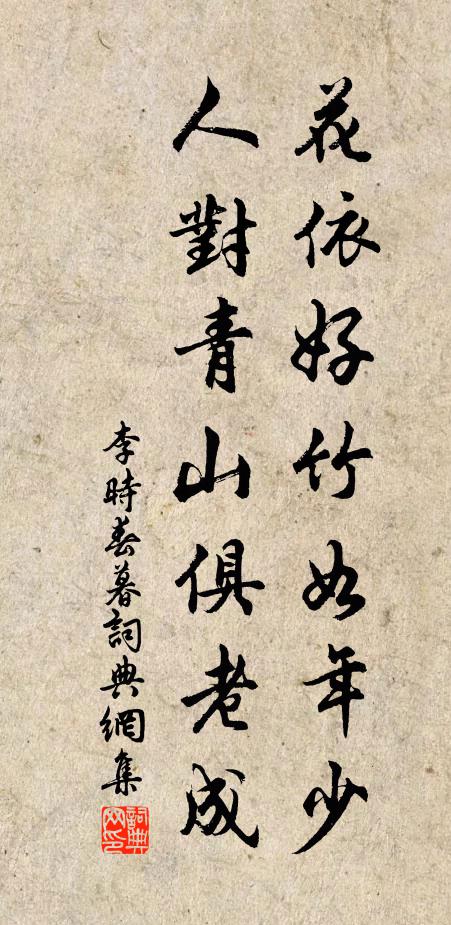 花依好竹如年少
人對青山俱老成
李時春暮詞典網集
詞典网印